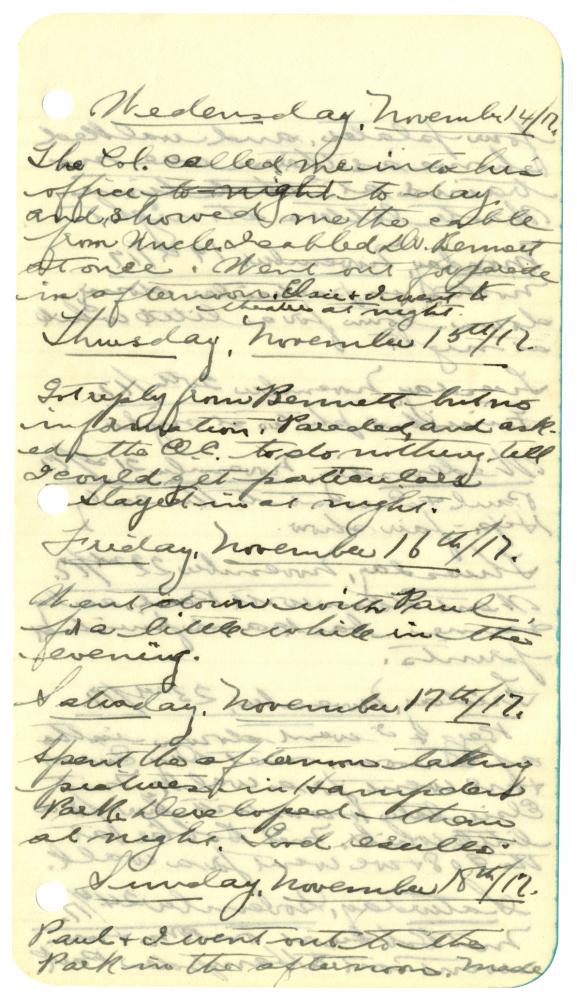 Wedensday, November 14/17.
The Col. called me into his
office to-night to day
and showed me the cable
from Uncle. I cabled Bennett
at once. Went out for parade
in afternoon. Elsie & I went to
theatre at night.
Thursday, November 15th/17.
Got reply from Bennett but no
information. Paraded, and ask-
ed the O.C. to do nothing till
I could get particulars
Stayed in at night.
Friday, November 16th/17.
Went down with Paul,
for a little while in the
evening.
Saturday, November 17th/17.
Spent the afternoon taking
pictures in Hampden
Park. Developed them
at night. Good results.
Sunday, November 18th/17.
Paul & I went out to the
Park in the afternoon. Made